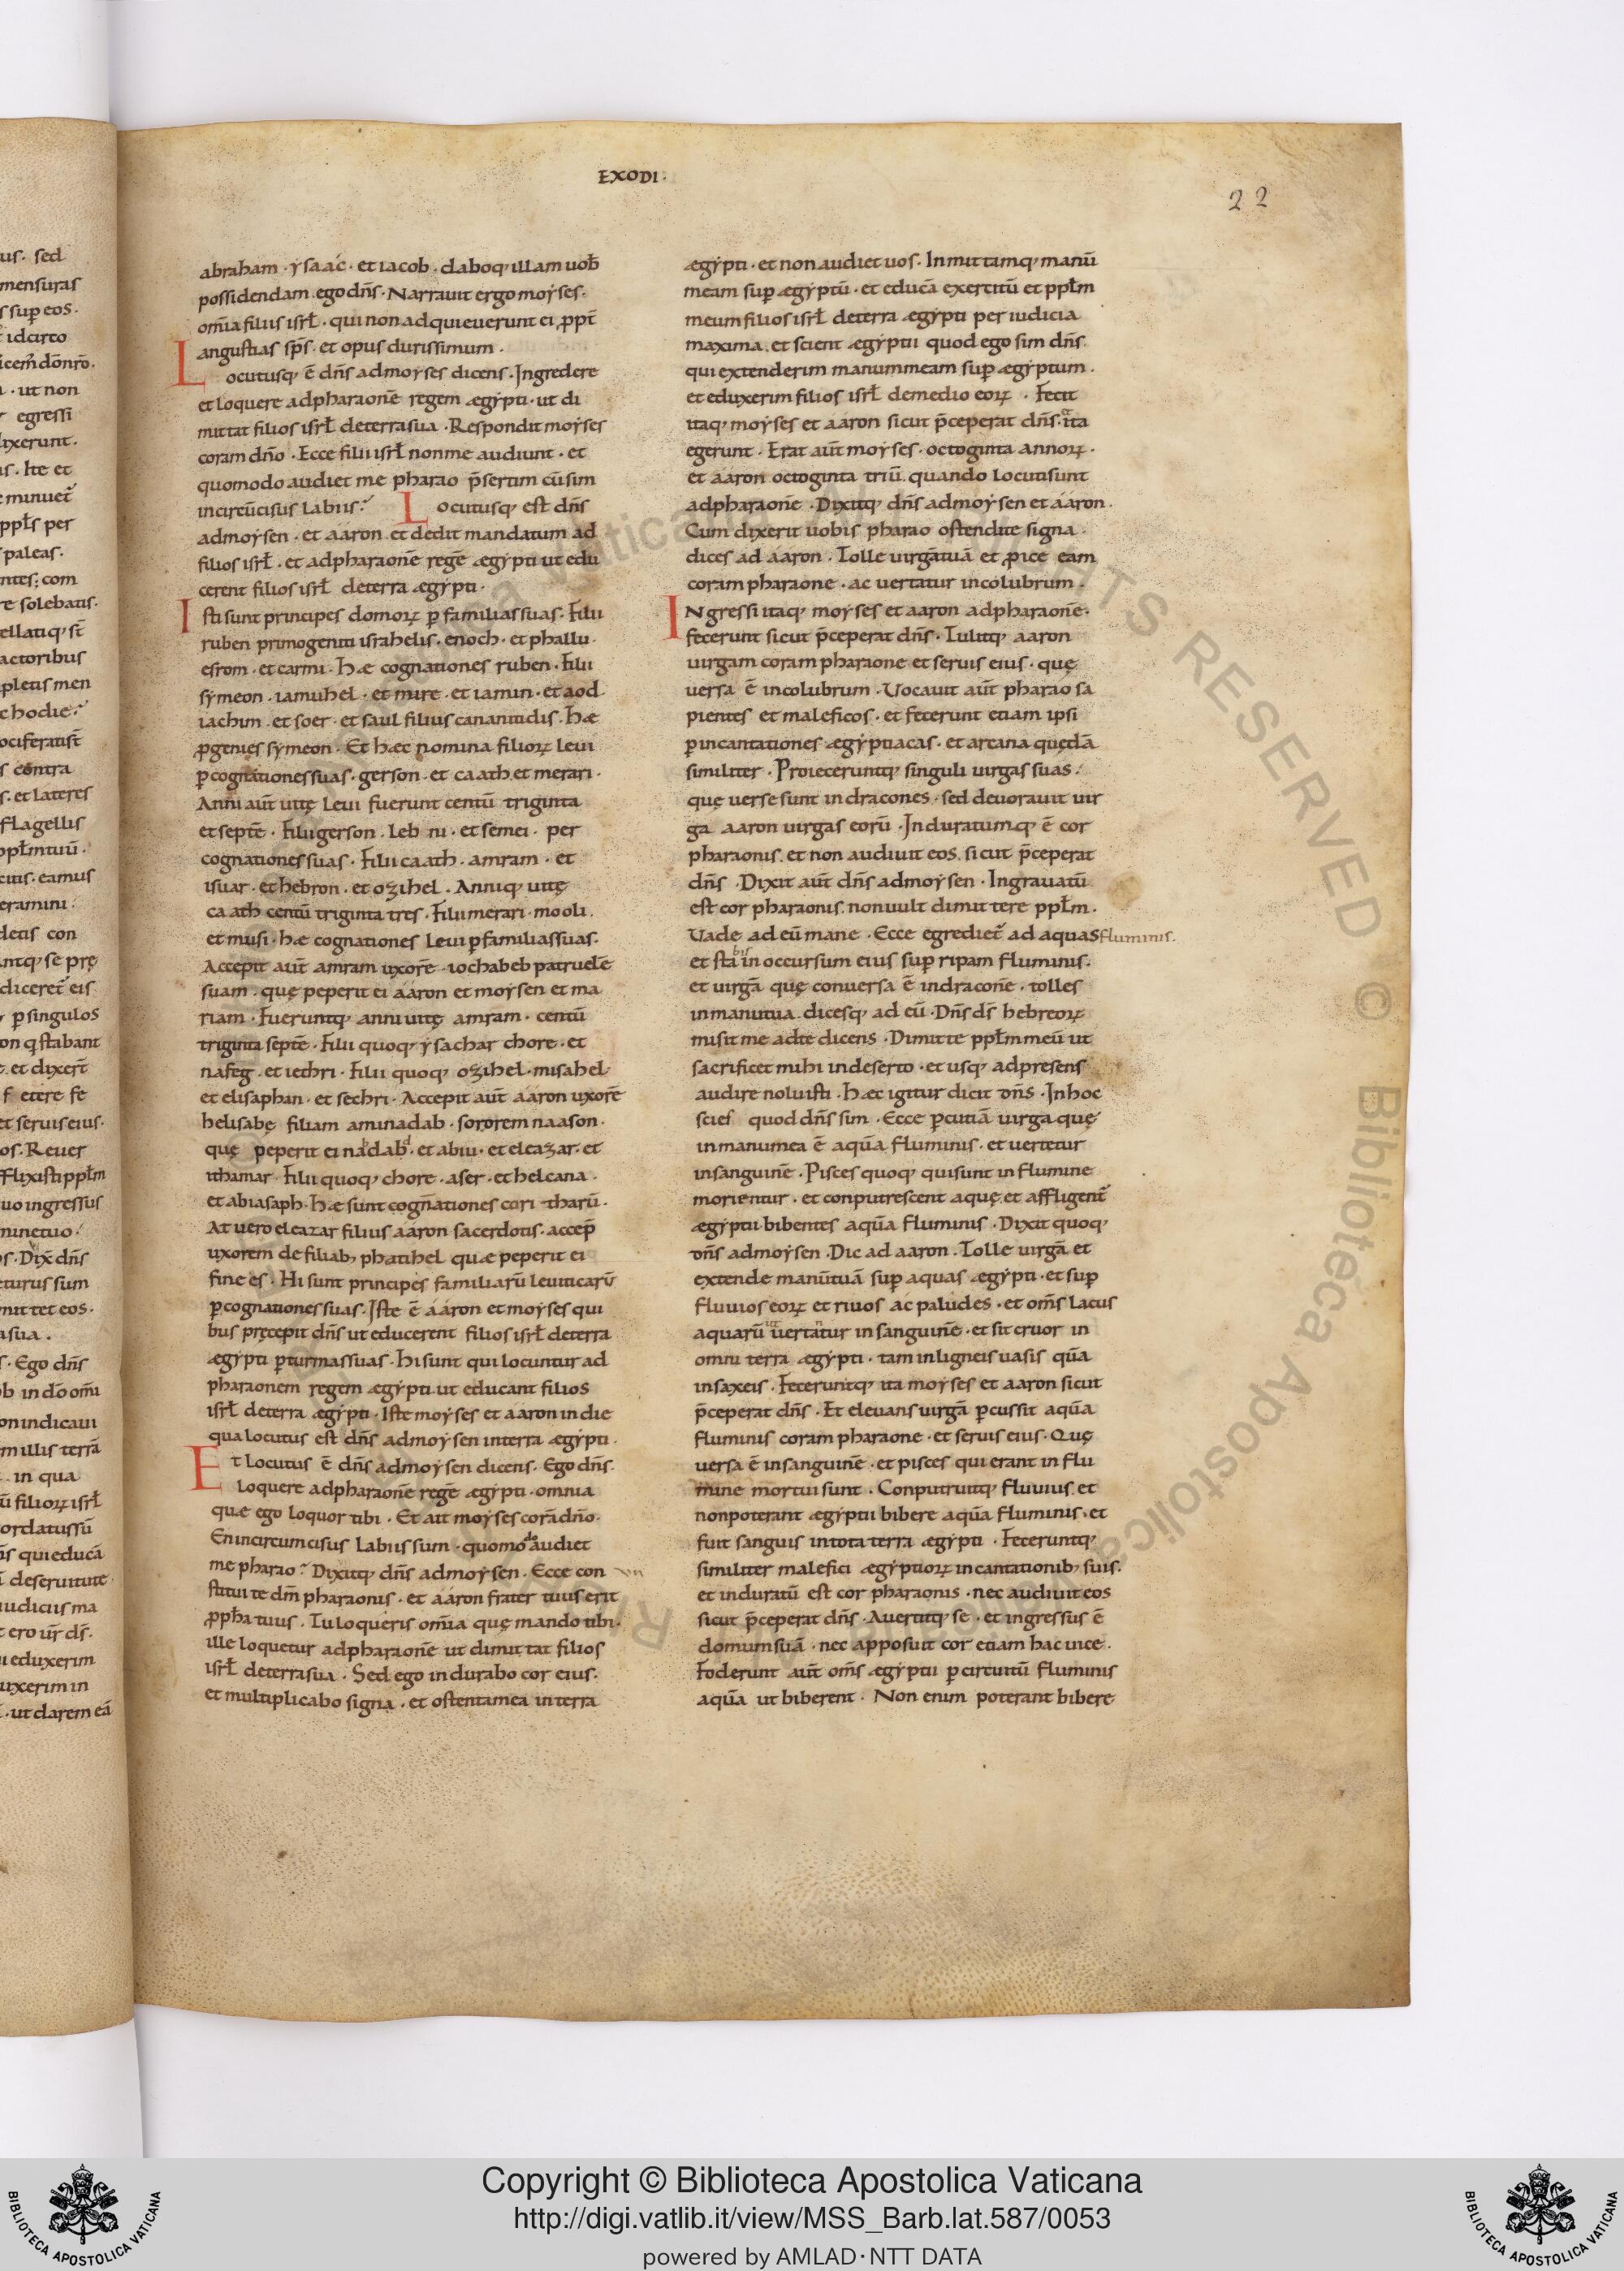 EXODI·
22
abraham · ẏsaac · et iacob · daboq; illam uob̄
possidendam ego dn̄s · Narrauit ergo moẏses ·
om̄ia filiis isrł · qui non adquieuerunt ei ꝓpt̄
angustias sp̄s · et opus durissimum ·
Locutusq; ē dn̄s admoẏses dicens · Ingredere
et loquere adpharaonē regem ægẏpti · ut di
mittat filios isrł deterrasua · Respondit moẏses
coram dn̄o · Ecce filii isrł nonme audiunt · et
quomodo audiet me pharao p̄sertim cū sim
incircūcisus labiis? Locutusq; est dn̄s
admoẏsen · et aaron et dedit mandatum ad
filios isrł · et adpharaonē regē ægẏpti ut edu
cerent filios isrł deterra ægẏpti ·
Isti sunt principes domoꝝ ꝑ familias suas · Filii
ruben primogeniti israhelis · enoch · et phallu ·
esrom · et carmi · Hæ cognationes ruben · Filii
sẏmeon · iamuhel · et mire · et iamin · et aod ·
iachim · et soer · et saul filius cananitidis · Hæ
ꝓgenies sẏmeon · Et hæc nomina filioꝝ leui
ꝑ cognationes suas · gerson · et caath et merari ·
Anni aūt uitę leui fuerunt centū triginta
et septē · Filii gerson · leb ni · et semei · per
cognationes suas · Filii caath · amram · et
isuar · et hebron · et ozihel · Anniq; uitę
caath centū triginta tres · Filii merari · mooli ·
et musi · hæ cognationes leui ꝑ familias suas ·
Accepit aūt amram uxorē · iochabeb patruelē
suam · quę peperit ei aaron et moẏsen et ma
riam · Fueruntq; anni uitę amram · centū
triginta septē · Filii quoq; ẏsachar chore · et
nafeg · et iechri · Filii quoq; ozihel · misahel ·
et elisaphan · et sechri · Accepit aūt aaron uxorē
helisabę filiam aminadab · sororem naason ·
quę peperit ei nadab · et abiu · et eleazar · et
ithamar · Filii quoq; chore · aser · et helcana ·
et abiasaph · hæ sunt cognationes cori tharū ·
At uero eleazar filius aaron sacerdotis · accep̄
uxorem de filiab; phatihel quæ peperit ei
fine es · Hi sunt principes familiarū leuiticarū
ꝑ cognationes suas · Iste ē aaron et moẏses qui
bus pręcepit dn̄s ut educerent filios isrł deterra
ægẏpti ꝑ turmas suas · Hi sunt qui locuntur ad
pharaonem regem ægẏpti · ut educant filios
isrł deterra ægẏpti · Iste moẏses et aaron in die
qua locutus est dn̄s admoẏsen interra ægẏpti ·
Et locutus ē dn̄s admoẏsen dicens · Ego dn̄s ·
loquere adpharaonē regē ægẏpti · omnia
quæ ego loquor tibi · Et ait moẏses corā dn̄o ·
En incircumcisus labiis sum · quomodo audiet
me pharao? Dixitq; dn̄s admoẏsen · Ecce con
stitui te dm̄ pharaonis · et aaron frater tuus erit
ꝓph̄a tuus · Tu loqueris om̄ia quę mando tibi ·
ille loquetur adpharaonē ut dimittat filios
isrł deterrasua · Sed ego indurabo cor eius ·
et multiplicabo signa · et ostentamea interra
ægẏpti · et non audiet uos · Inmittamq; manū
meam suꝑ ægẏptū · et educā exercitū et ppłm
meum filios isrł deterra ægẏpti per iudicia
maxima · et scient ægẏptii quod ego sim dn̄s ·
qui extenderim manummeam suꝑ ægẏptum ·
et eduxerim filios isrł demedio eoꝝ · Fecit
itaq; moẏses et aaron sicut p̄ceperat dn̄s · ita
egerunt · Erat aūt moẏses · octoginta annoꝝ ·
et aaron octoginta triū · quando locutisunt
adpharaonē · Dixitq; dn̄s admoẏsen et aaron ·
Cum dixerit uobis pharao ostendite signa ·
dices ad aaron · Tolle uirgātuā et ꝓice eam
coram pharaone · ac uertatur incolubrum ·
Ingressi itaq; moẏses et aaron adpharaonē ·
fecerunt sicut p̄ceperat dn̄s · Tulitq; aaron
uirgam coram pharaone et seruis eius · quę
uersa ē incolubrum · Uocauit aūt pharao sa
pientes et maleficos · et fecerunt etiam ipsi
ꝑ incantationes ægẏptiacas · et arcana quędā
similiter · Proieceruntq; singuli uirgas suas ·
quę uerse sunt in dracones · sed deuorauit uir
ga aaron uirgas eorū · Induratumq; ē cor
pharaonis · et non audiuit eos sicut p̄ceperat
dn̄s · Dixit aūt dn̄s admoẏsen · Ingrauatū
est cor pharaonis nonuult dimittere ppłm ·
Uade ad eū mane · Ecce egrediet̄ ad aquas fluminis ·
et stabis in occursum eius suꝑ ripam fluminis ·
et uirgā quę conuersa ē indraconē · tolles
inmanutua dicesq; ad eū · Dn̄s ds̄ hebreoꝝ
misit me adte dicens · Dimitte ppłm meū ut
sacrificet mihi indeserto · et usq; adpresens
audire noluisti · Hæc igitur dicit dn̄s · Inhoc
scies quod dn̄s sim · Ecce ꝑcutiā uirga quę
inmanumea ē aquā fluminis · et uertetur
insanguinē · Pisces quoq; quisunt in flumine
morientur · et conputrescent aquę et affligent̄
ægẏptii bibentes aquā fluminis · Dixit quoq;
dn̄s admoẏsen · Dic ad aaron · Tolle uirgā et
extende manūtuā suꝑ aquas ægẏpti · et suꝑ
fluuios eoꝝ et riuos ac paludes · et om̄s lacus
aquarū ut uertantur in sanguinē · et sit cruor in
omni terra ægẏpti · tam inligneis uasis quā
insaxeis · Feceruntq; ita moẏses et aaron sicut
p̄ceperat dn̄s · Et eleuans uirgā ꝑcussit aquā
fluminis coram pharaone · et seruis eius · Quę
uersa ē insanguinē · et pisces qui erant in flu
mine mortui sunt · Conputruitq; fluuius et
nonpoterant ægẏptii bibere aquā fluminis · et
fuit sanguis intota terra ægẏpti · Feceruntq;
similiter malefici ægẏptioꝝ incantationib; suis ·
et induratū est cor pharaonis · nec audiuit eos
sicut p̄ceperat dn̄s · Auertitq; se · et ingressus ē
domumsuā · nec apposuit cor etiam hac uice ·
Foderunt aūt om̄s ægẏptii ꝑ circuitū fluminis
aquā ut biberent · Non enim poterant bibere
Copyright © Biblioteca Apostolica Vaticana
http://digi.vatlib.it/view/MSS_Barb.lat.587/0053
powered by AMLAD·NTT DATA
BIBLIOTECA APOSTOLICA VATICANA
BIBLIOTECA APOSTOLICA VATICANA